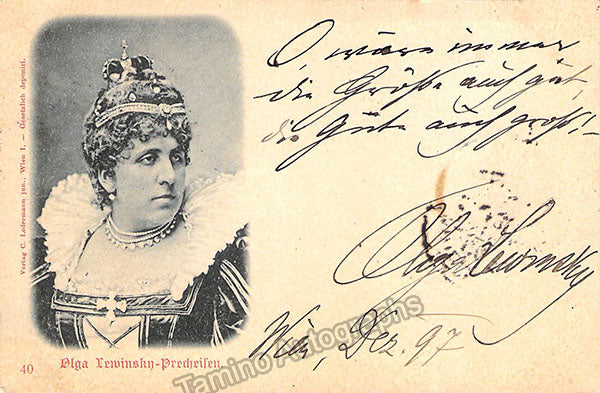 O, wäre immer
die Größe auch gut,
die Güte auch groß! -
Olga Lewinsky
Wien, Dez. 97
Verlag C. Ledermann jun., Wien I. – Gesetzlich deponirt.
40
Olga Lewinsky-Precheisen.
Tamino Autographs